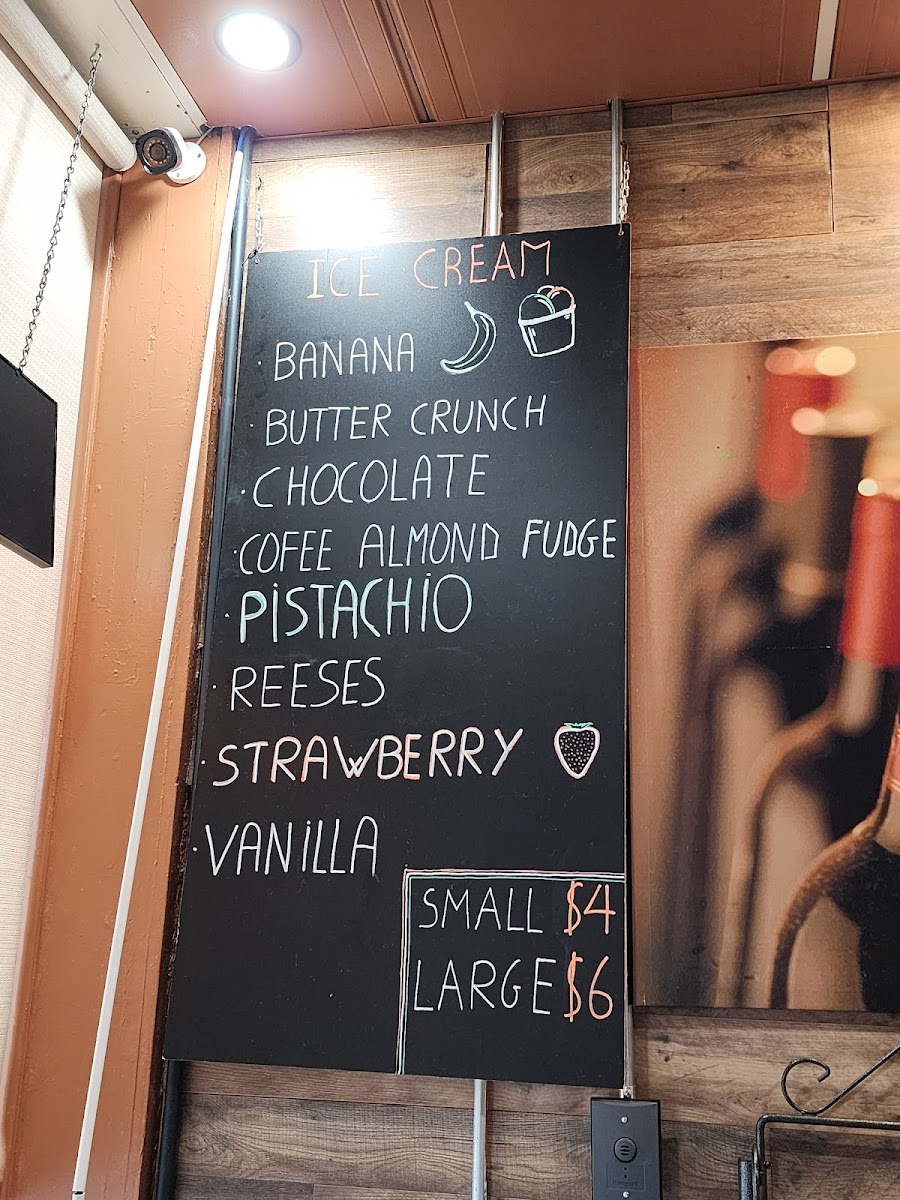 ICE CREAM
· BANANA
· BUTTER CRUNCH
· CHOCOLATE
· COFEE ALMOND FUDGE
· PISTACHIO
· REESES
· STRAWBERRY
· VANILLA
SMALL $4
LARGE $6